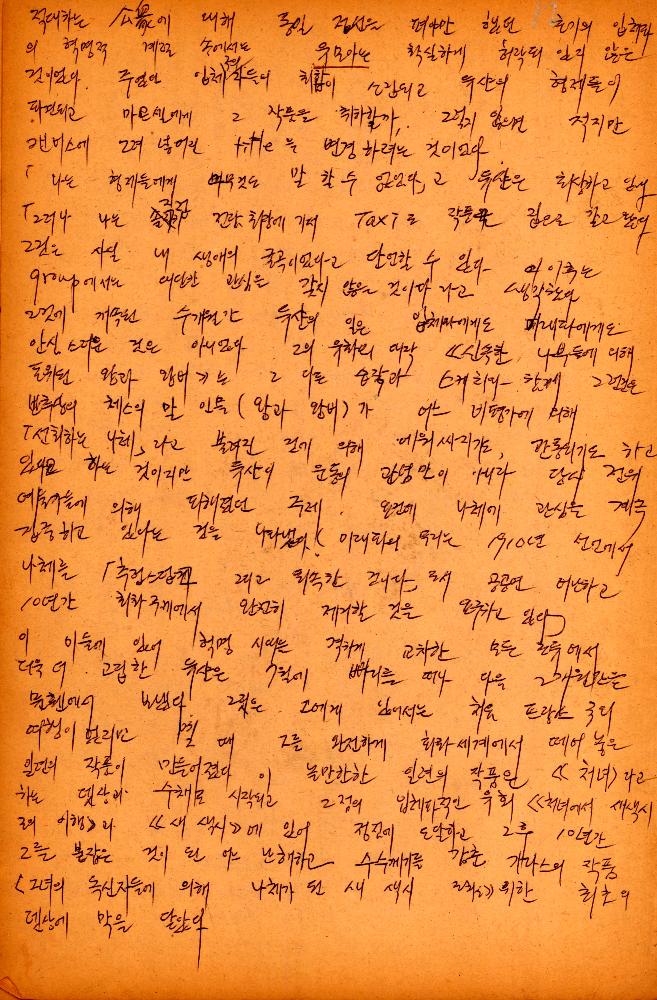 적대하는 公衆에 대해 통일 전선을 펴야만 했던 초기의 입체파
의 혁명적 계획 속에서는 유모아는 확실하게 허락되 있지 않은
것이었다. 주요한 입체파들의 회합이 소집되고 뒤샹의 형제들이
파견되고 마르셀에게 그 작품을 취하할까, 그렇지 않으면 적지만
캔버스에 그려 넣어진 title을 변경하려는 것이었다
「나는 형제들에게 아무것도 말 할 수 없었다」고 뒤샹은 회상하고 있다
「그러나 나는 직접 전람회장에 가서 Taxi로 작품을 집으로 갖고 왔다
그것은 사실 내 생애의 굴곡이었다고 단언할 수 있다 이후는
group에서는 대단한 관심은 갖지 않은 것이다 라고 생각했다
그것에 계속된 수개월간 뒤샹의 일은 입체파에게도 미래파에게도
안심 스러운 것은 아니었다 그의 유화의 대작 《신속한 나부들에 의해
포위된 왕과 왕비》는 그 다른 습작과 스케치와 함께 그것은
체스의 말 인물 (왕과 왕비)가 어느 에 의해
「선회하는 나체」라고 불려진 것에 의해 에워싸지고, 관통되기도 하고
있 하는 것이지만 뒤샹의 운동의 관념만이 아니라 당시 전위
예술가들에 의해 피해졌던 주제. 요컨대 나체에 관심을 계속
집중하고 있다는 것을 나타냈다 (미래파의 무리는 1910년 선언에서
나체를 「추접스럽 그리고 퇴속한 것이다」로서 공공연 비난하고
10년간 회화 주제에서 완전히 제거할 것을 요구하고 있다)
이 이들에 있어 혁명 시대는 격하게 교차한 모든 운동에서
더욱 더 고립한 뒤샹은 7월에 빠리를 떠나 다음 2개월간을
뮌헨에서 보냈다 그것은 그에게 있어서는 처음 프랑스 국외
여행이 였지만 이 때 그를 완전하게 회화세계에서 떼어 놓은
일련의 작품이 만들어졌다 이 놀만한한 일련의 작품은 《처녀》라고
하는 뎃상과 수채로 시작되고 2점의 입체파적인 유화 《처녀에서 새색시
로의 이행》과 《새 색시》에 있어 정점에 도달하고 그 후 10년간
그를 붙잡은 것이 된 어느 난해하고 수수께끼를 감춘 가라스의 작품
《그녀의 독신자들에 의해 나체가 된 새 색시 조차》를 위한 최초의
뎃상에 막을 달았다